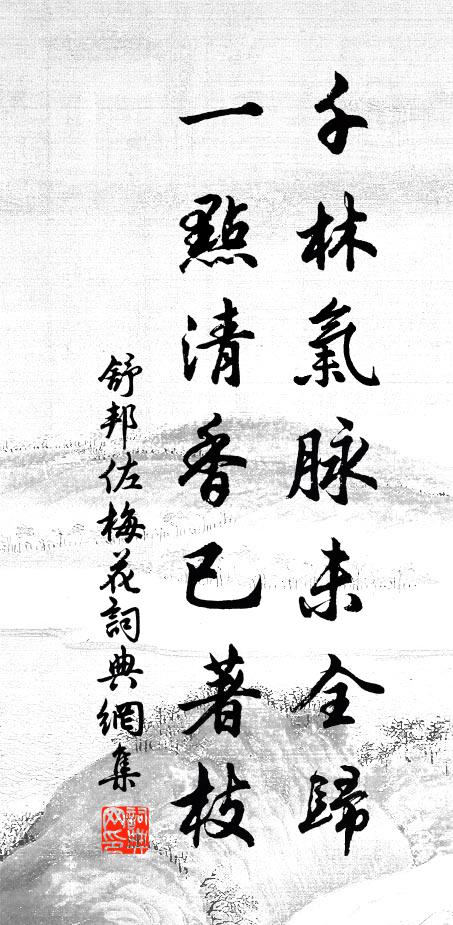 千林氣脉未全歸
一點清香已著枝
舒邦佐梅花詞典網集